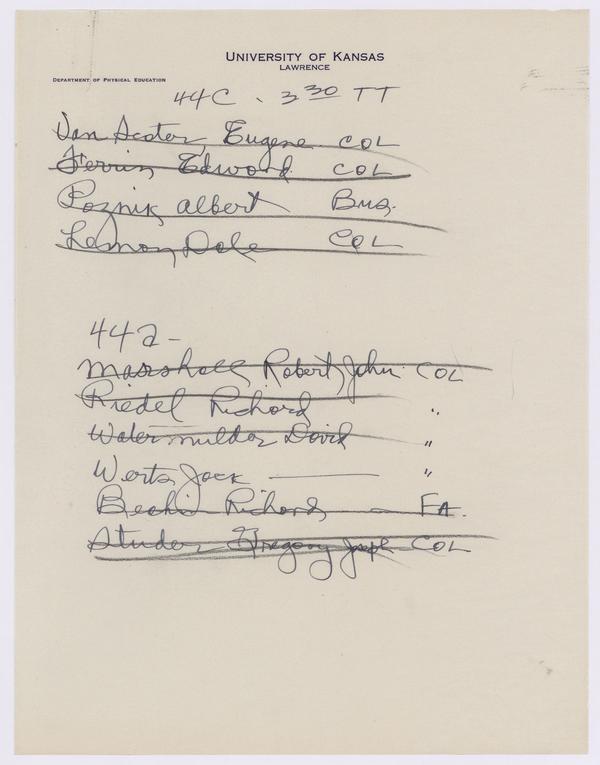 UNIVERSITY OF KANSAS
LAWRENCE
DEPARTMENT OF PHYSICAL EDUCATION
44C - 3 30 TT
Van Scoter, Eugene COL
Ferrin, Edward COL
Poznik Albert Bus.
Lemon, Dale COL
442-
Marshall Robert John COL
Riedel Richard "
Watermulder David "
Werts Jack — "
Richard — FA.
Studer Gregory Joseph COL